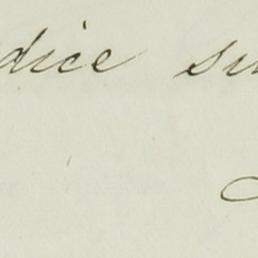 dice su